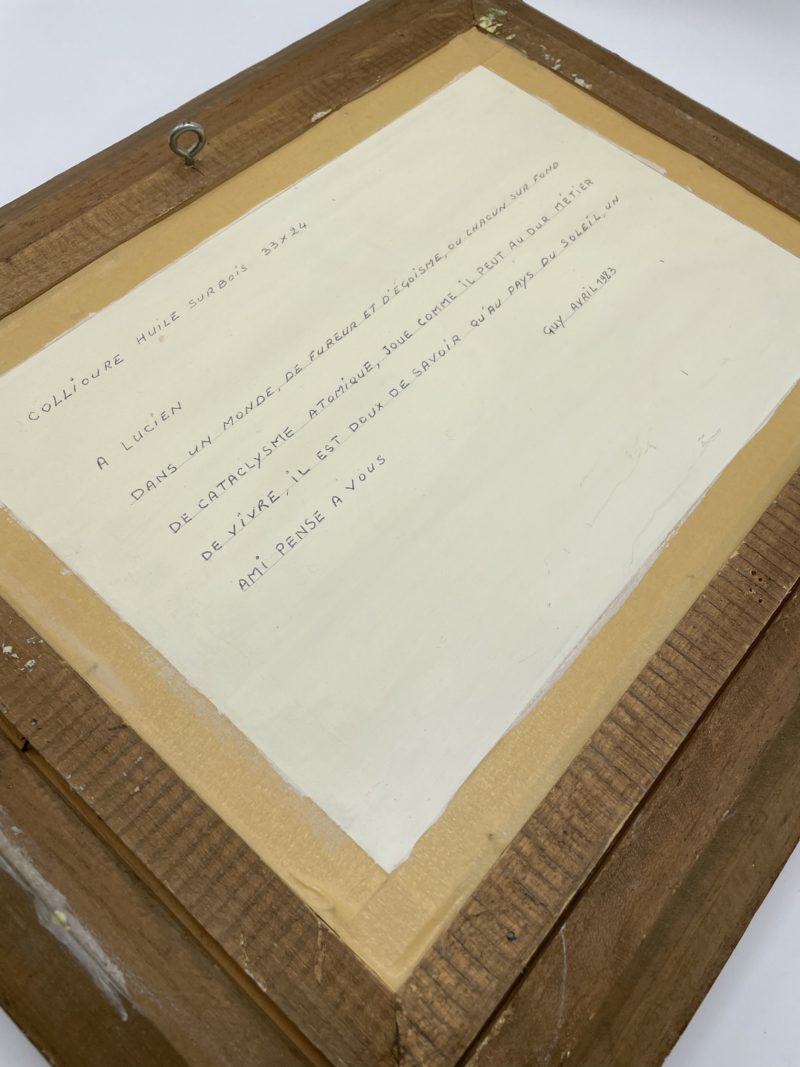 COLLIOURE HUILE SUR BOIS 33×24
A LUCIEN
DANS UN MONDE, DE FUREUR ET D'ÉGOÏSME, OU CHACUN SUR FOND
DE CATACLYSME ATOMIQUE, JOUE COMME IL PEUT AU DUR MÉTIER
DE VIVRE, IL EST DOUX DE SAVOIR QU'AU PAYS DU SOLEIL, UN
AMI PENSE A VOUS
GUY AVRIL 1983